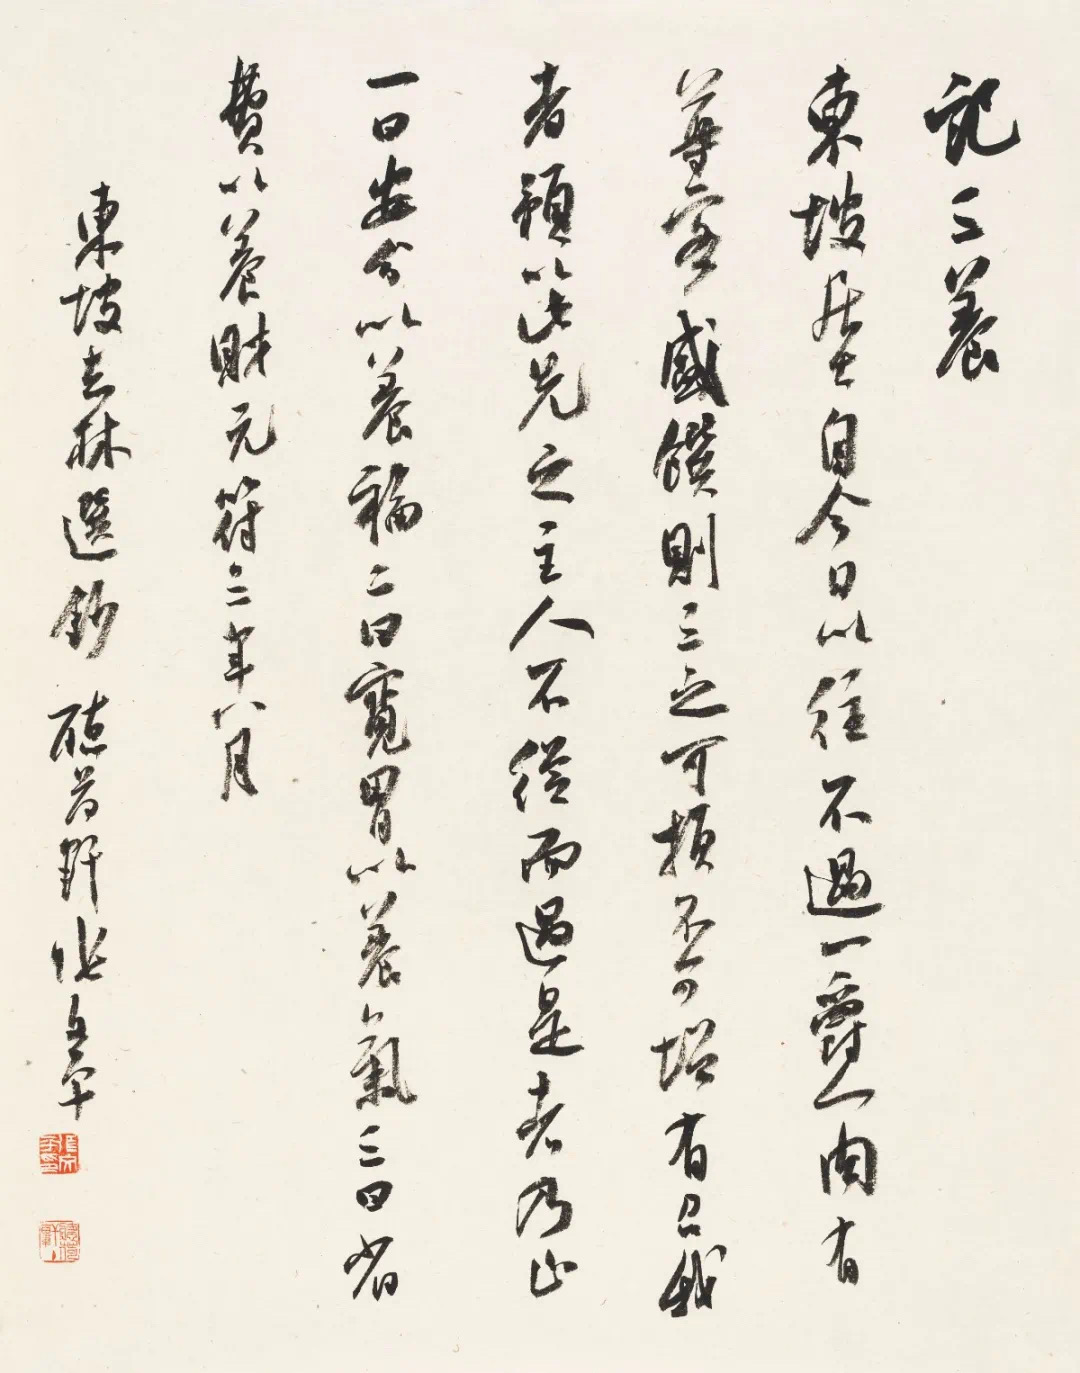 記三養
東坡居士自今日以往不過一爵一肉有
尊客盛饌則三之可損不可增有召我
者預以此先之主人不從而過是者乃止
一曰安分以養福二曰寬胃以養氣三曰省
費以養財元符三年八月
東坡志林選鈔